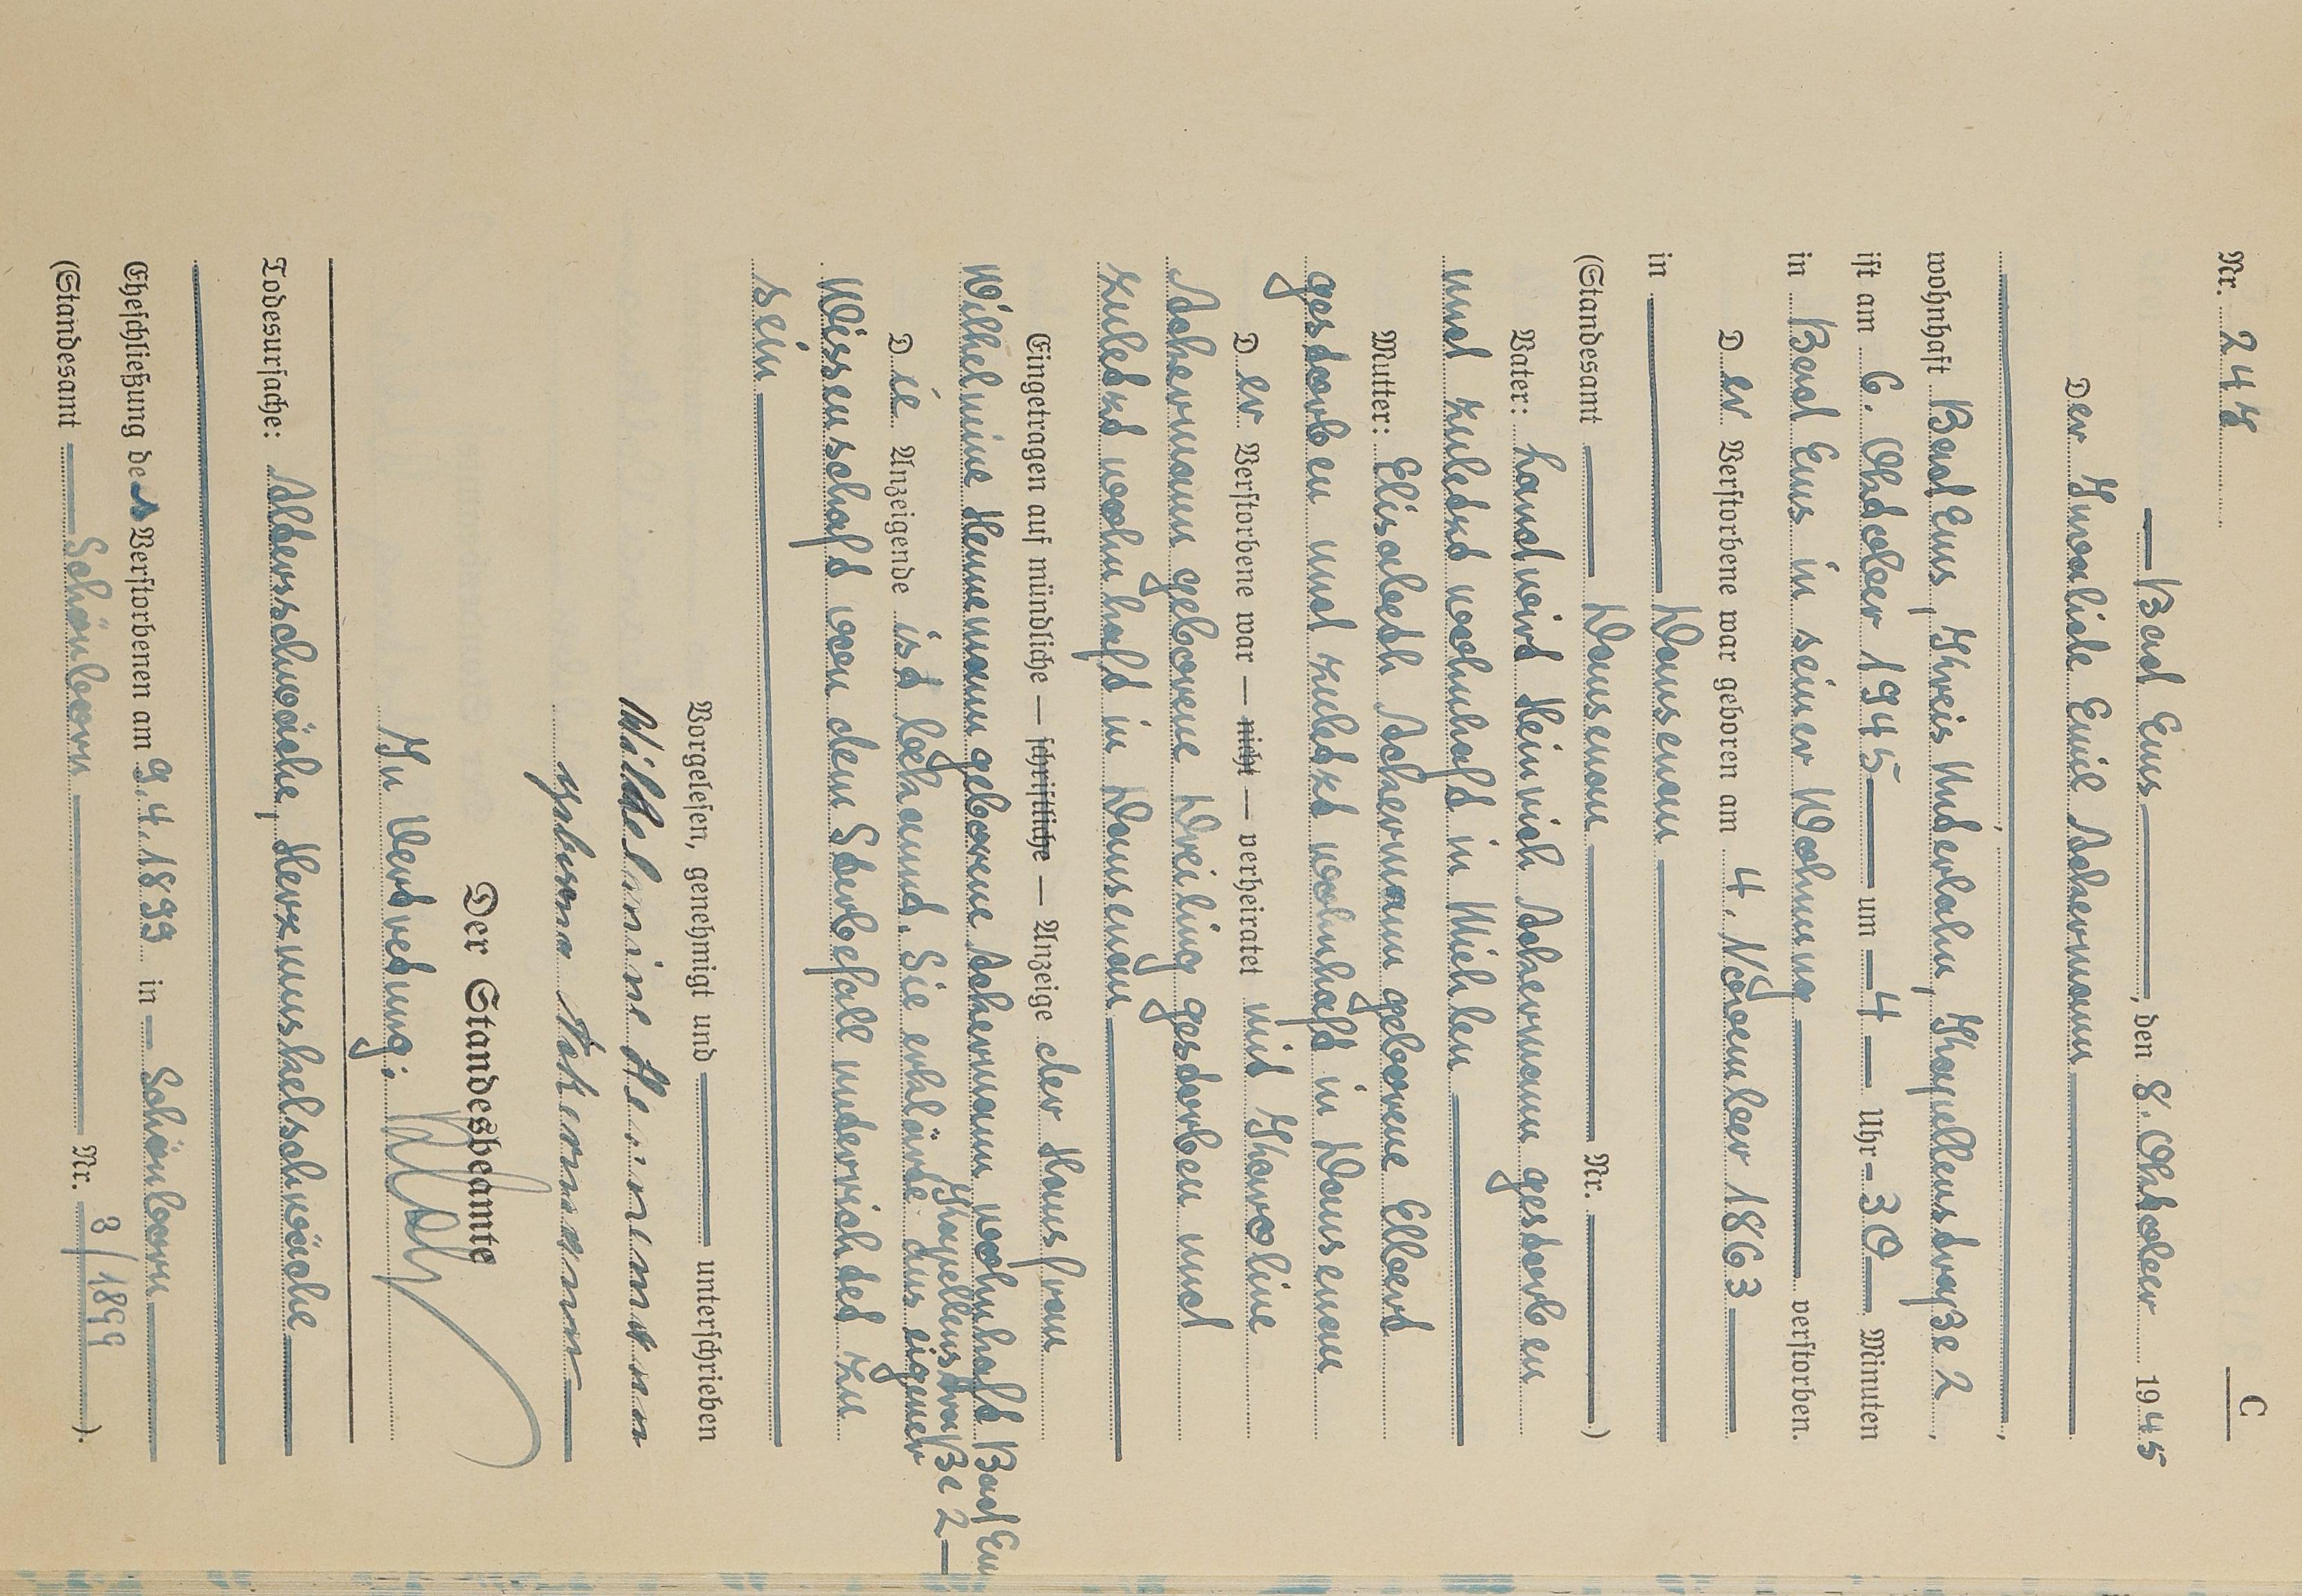 Nr. 247
C
Bad Ems, den 8. Oktober 1945
Der Invalide Emil Ackermann
wohnhaft Bad Ems, Kreis Unterlahn, Kapellenstraße 2,
ist am 6. Oktober 1945 um 4 Uhr 30 Minuten
in Bad Ems in seiner Wohnung verstorben.
Der Verstorbene war geboren am 4. November 1863
in Dausenau
(Standesamt Dausenau Nr. )
Vater: Landwirt Heinrich Ackermann gestorben
und zuletzt wohnhaft in Miehlen
Mutter: Elisabeth Ackermann geborene Elbert
gestorben und zuletzt wohnhaft in Dausenau
Der Verstorbene war — nicht — verheiratet mit Karoline
Ackermann geborene Dreiling gestorben und
zuletzt wohnhaft in Dausenau
Eingetragen auf mündliche — schriftliche — Anzeige der Hausfrau
Wilhelmine Hennemann geborene Ackermann wohnhaft Bad Em
Kapellenstraße 2
Die Anzeigende ist bekannt. Sie erklärte aus eigener
Wissenschaft von dem Sterbefall unterrichtet zu
sein
Vorgelesen, genehmigt und unterschrieben
Wilhelmine Hennemann
geborene Ackermann
Der Standesbeamte
In Vertretung:
Todesursache: Altersschwäche, Herzmuskelschwäche
Eheschließung des Verstorbenen am 9.4.1899 in Schönborn
(Standesamt Schönborn Nr. 8/1899).